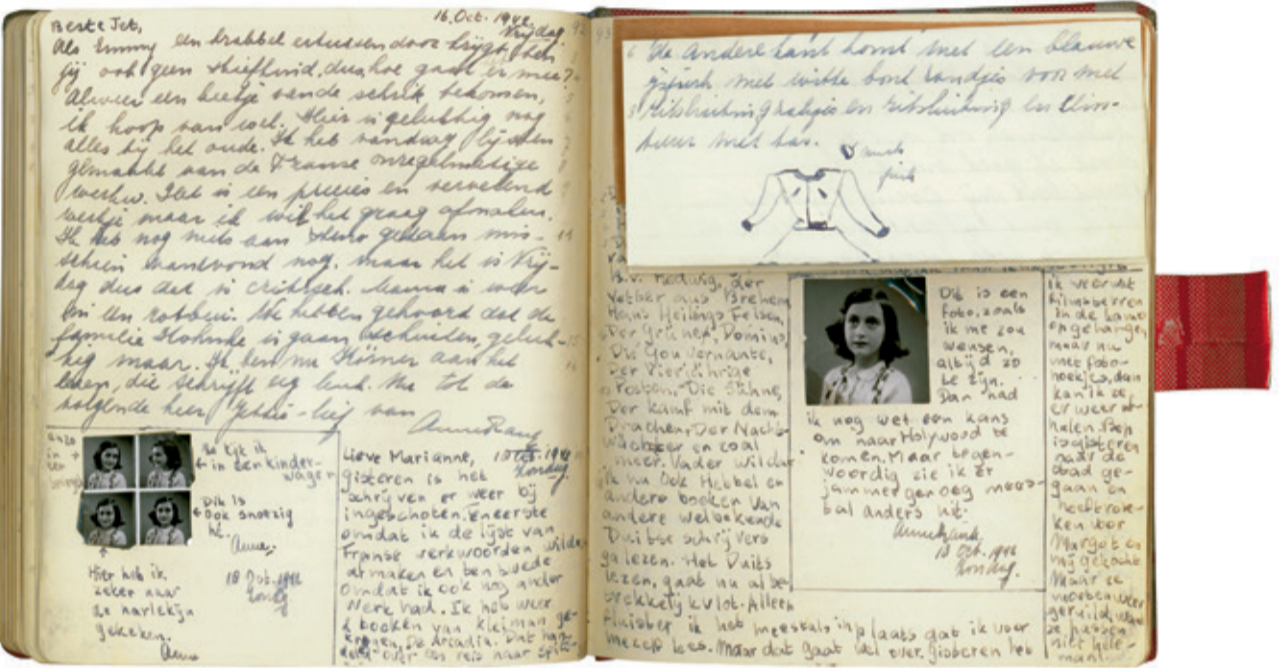 16. Oct. 1942.
Vrijdag
Beste Jet,
Als Emmy een krabbel ertussendoor krijgt, ben
jij ook geen stiefkind, dus hoe gaat er mee?
Alweer een beetje van de schrik bekomen,
ik hoop van wel. Hier is gelukkig nog
alles bij het oude. Ik heb vandaag lijsten
gemaakt van de Franse onregelmatige
werkw. Dat is een precies en vervelend
werkje maar ik wil het graag afmaken.
Ik heb nog niets aan steno gedaan mis-
schien vanavond nog, maar het is Vrij-
dag dus dat is critisch. Mama is weer
in een
We hebben gehoord dat de
familie is gaan scheiden, geluk-
kig maar. Ik ben nu Körner aan het
lezen, die schrijft erg leuk. Nu tot de
volgende keer Jettie-lief van
Anne Frank
Zo kijk ik
in een kinder-
wagen
Dit is
ook snoezig
hè.
Anne.
18 Oct. 1942
Zondag
Hier heb ik
zeker naar
de harlekijn
gekeken.
Anne
Lieve Marianne,
Zondag
gisteren is het
schrijven er weer bij
ingeschoten. Ten eerste
omdat ik de lijst van
Franse werkwoorden wilde
afmaken en ten tweede
omdat ik ook nog ander
werk had. Ik heb weer
2 boeken van Kleiman ge-
kregen, De Arcadia. Dat han-
delt over een reis naar Spits-
93
de andere kant komt met een blauwe
met witte bont randjes voor met
ritssluiting zakjes en ritssluiting en
met tas.
Hedwig, der
Vetter aus Bremen,
Hans Heilings Felsen,
Der Grüne Domino,
Die Gouvernante,
Der Vierjährige
Posten, Die Sühne,
Der Kamf mit dem
Drachen, Der Nacht-
wächter en zoal
meer. Vader wil dat
ik nu ook Hebbel en
andere boeken van
andere welbekende
Duitse schrijvers
ga lezen. Het Duits
lezen, gaat nu al be-
trekkelijk vlot. Alleen
fluister ik het meestal in plaats dat ik voor
mezelf lees. Maar dat gaat wel over. Gisteren heb
Dit is een
foto, zoals
ik me zou
wensen,
altijd zo
te zijn.
Dan had
ik nog wel een kans
om naar Holywood te
komen. Maar tegen-
woordig zie ik er
jammer genoeg mees-
tal anders uit.
Anne Frank.
18 Oct. 1942
Zondag.
ik weer wat
filmsterren
in de kamer
opgehangen,
maar nu
met foto-
hoekjes, dan
kan ik ze
er weer af-
halen. Bep
is gisteren
naar de
stad ge-
gaan en
heeft rok-
ken voor
Margot en
mij gekocht
Maar ze
moeten weer
geruild, want
ze passen
niet hele-
maal